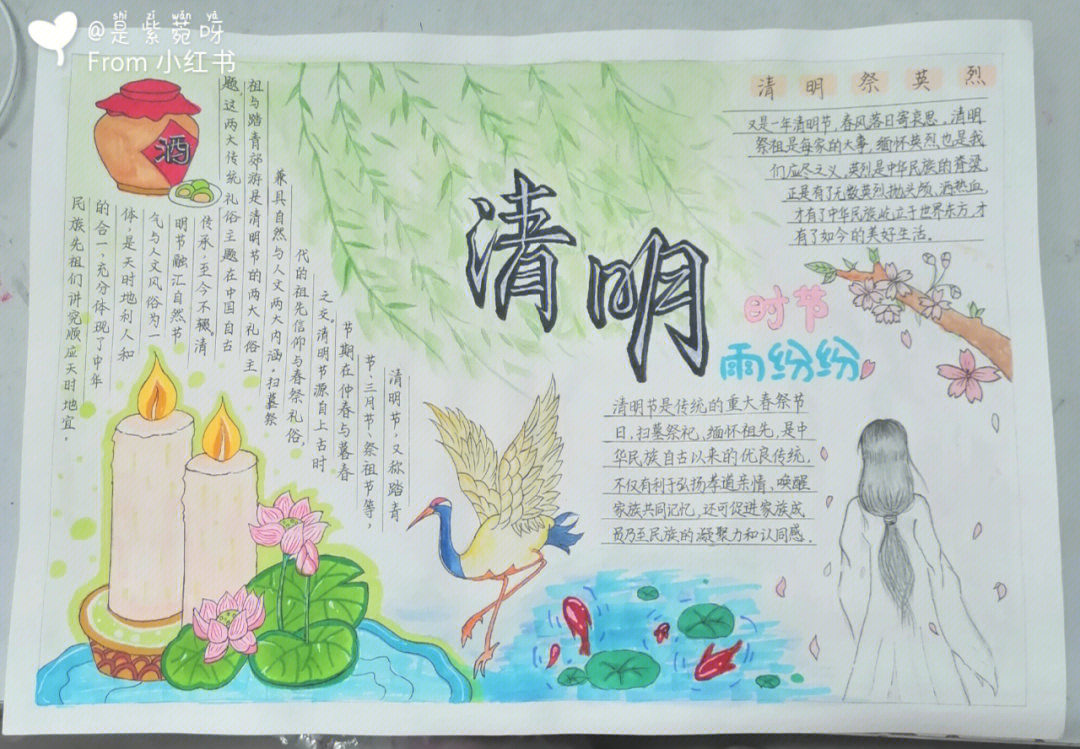 @是紫菀呀
From 小红书
酒
清明
时节
雨纷纷
清明祭英烈
又是一年清明节,春风落日寄哀思,清明
祭祖是每家的大事,缅怀英烈也是我
们应尽之义,英烈是中华民族的脊梁,
正是有了无数英烈抛头颅,洒热血,
才有了中华民族屹立于世界东方,才
有了如今的美好生活。
清明节是传统的重大春祭节
日,扫墓祭祀、缅怀祖先,是中
华民族自古以来的优良传统,
不仅有利于弘扬孝道亲情、唤醒
家族共同记忆,还可促进家族成
员乃至民族的凝聚力和认同感。
清明节,又称踏青
节、三月节、祭祖节等,
节期在仲春与暮春
之交。清明节源自上古时
代的祖先信仰与春祭礼俗,
兼具自然与人文两大内涵,扫墓祭
祖与踏青郊游是清明节的两大礼俗主
题,这两大传统礼俗主题在中国自古
传承,至今不辍。清
明节融汇自然节
气与人文风俗为一
体,是天时地利人和
的合一,充分体现了中年
民族先祖们讲究顺应天时地宜,